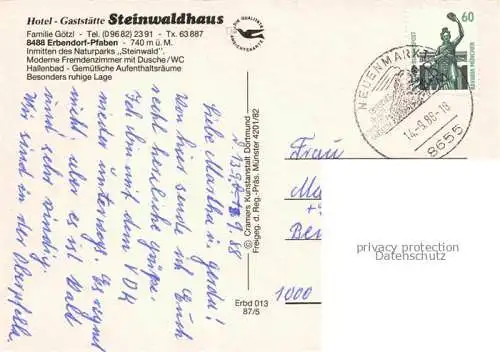 Hotel - Gaststätte Steinwaldhaus
Familie Götzl · Tel. (0 96 82) 23 91 · Tx. 63 887
8488 Erbendorf-Pfaben - 740 m ü. M.
Inmitten des Naturparks „Steinwald".
Moderne Fremdenzimmer mit Dusche/WC
Hallenbad - Gemütliche Aufenthaltsräume
Besonders ruhige Lage
DIE QUALITÄTS
ANSICHTSKARTE
60
DEUTSCHE BUNDESPOST
BAVARIA MÜNCHEN
NEUENMARKT
14.-9.88-18
8655
88
Liebe Martha u. Gerda!
Von hier sende ich Euch
recht herzliche Grüße.
Ich bin mit dem VDK
wieder unterwegs. Es regnet
nicht, aber es ist kalt
und sehr windig.
Wir sind in der Oberpfalz.
© Cramers Kunstanstalt Dortmund
Freigeg. d. Reg.-Präs. Münster 4201/82
Erbd 013
87/5
Frau
1000
privacy protection
Datenschutz